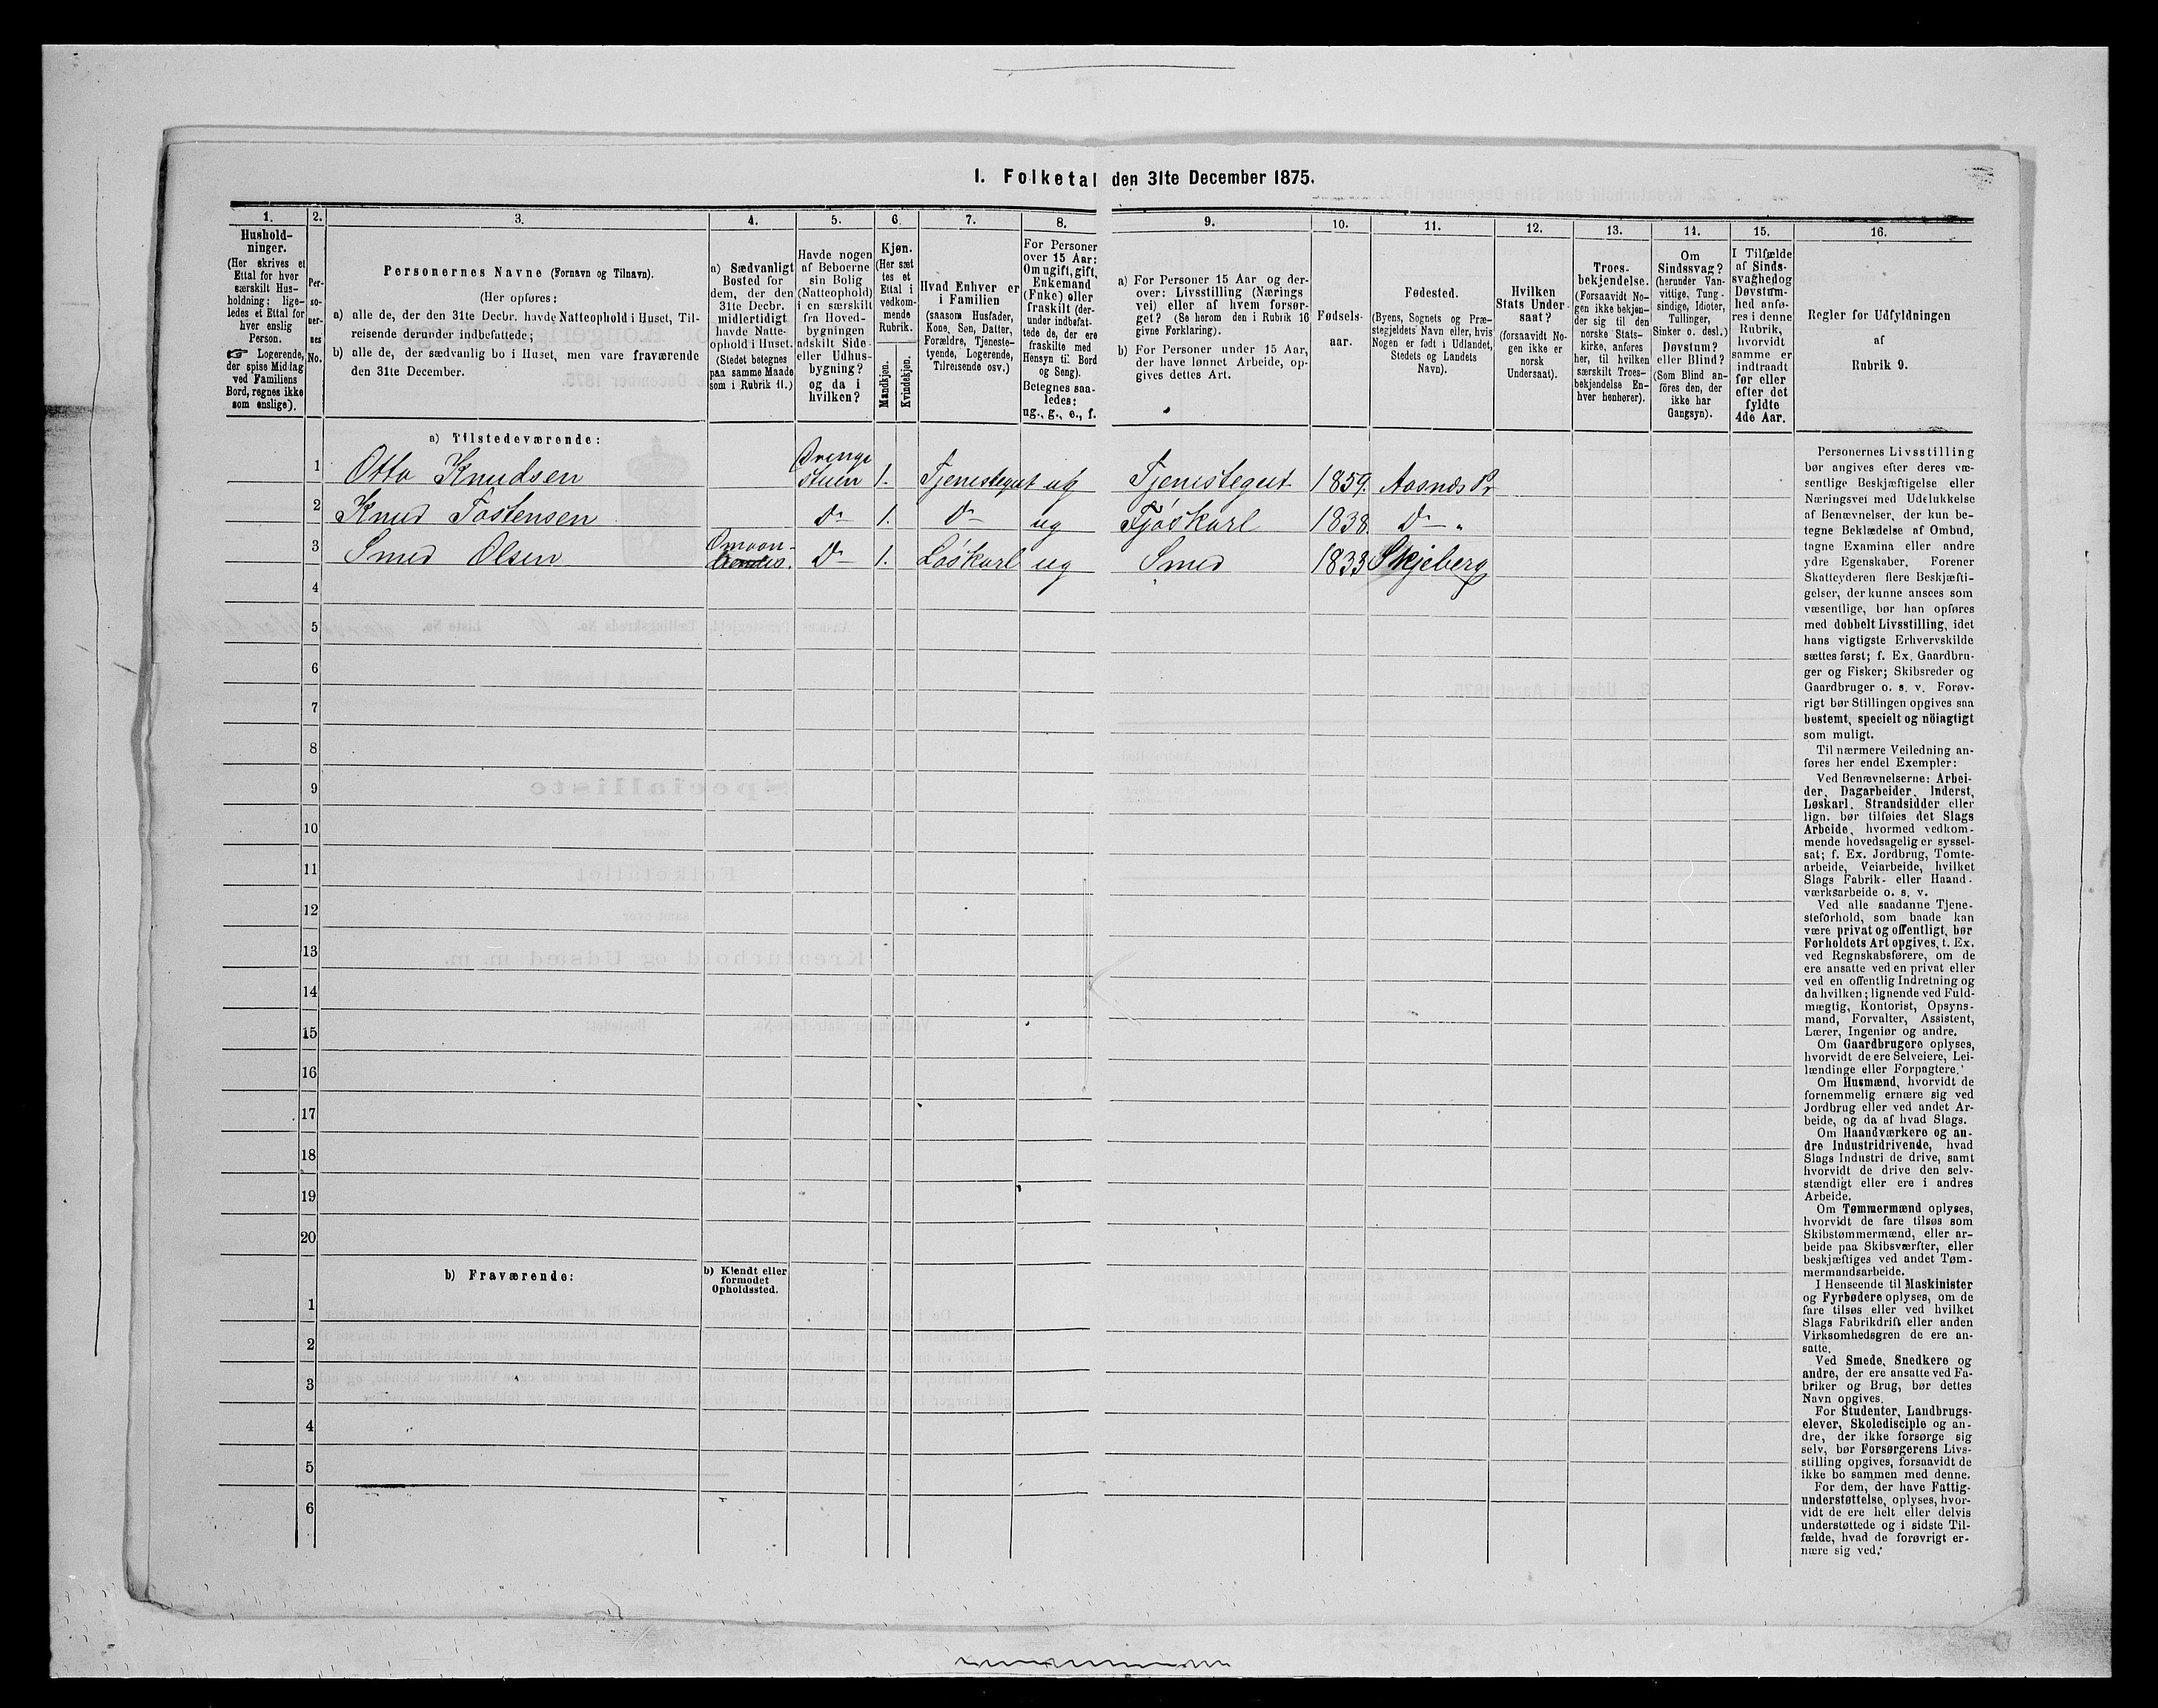 1. Folketal den 31te December 1875.
1.
Hushold-
ninger.
(Her skrives et
Ettal for hver
særskilt Hus-
holdning; lige-
ledes et Ettal for
hver enslig
Person.
☞ Logerende,
der spise Middag
ved Familiens
Bord, regnes ikke
som enslige).
2.
Per-
so-
ner-
nes
No.
3.
Personernes Navne (Fornavn og Tilnavn).
(Her opføres:
a) alle de, der den 31te Decbr. havde Natteophold i Huset, Til-
reisende derunder indbefattede;
b) alle de, der sædvanlig bo i Huset, men vare fraværende
den 31te December.
4.
a) Sædvanligt
Bosted for
dem, der den
31te Decbr.
midlertidigt
havde Natte-
ophold i Huset.
(Stedet betegnes
paa samme Maade
som i Rubrik 11.)
5.
Havde nogen
af Beboerne
sin Bolig
(Natteophold)
i en særskilt
fra Hoved-
bygningen
adskilt Side-
eller Udhus-
bygning?
og da i
hvilken?
6.
Kjøn.
(Her sæt
tes et
Ettal i
vedkom-
mende
Rubrik.
Mandkjøn.
Kvindekjøn.
7.
Hvad Enhver er
i Familien
(saasom Husfader,
Kone, Søn, Datter,
Forældre, Tjeneste-
tyende, Logerende,
Tilreisende osv.)
8.
For Personer
over 15 Aar:
Om ugift, gift,
Enkemand
(Enke) eller
fraskilt (der-
under indbefat-
tede de, der ere
fraskilte med
Hensyn til Bord
og Seng).
Betegnes saa-
ledes:
ug., g., e., f.
9.
a) For Personer 15 Aar og der-
over: Livsstilling (Nærings
vei) eller af hvem forsør-
get? (Se herom den i Rubrik 16
givne Forklaring).
b) For Personer under 15 Aar,
der have lønnet Arbeide, op-
gives dettes Art.
10.
Fødsels-
aar.
11.
Fødested.
(Byens, Sognets og Præ-
stegjeldets Navn eller, hvis
Nogen er født i Udlandet,
Stedets og Landets
Navn).
12.
Hvilken
Stats Under-
saat?
(forsaavidt No-
gen ikke er
norsk
Undersaat).
13.
Troes-
bekjendelse.
(Forsaavidt No-
gen ikke bekjen-
der sig til den
norske Stats-
kirke, anføres
her, til hvilken
særskilt Troes-
bekjendelse En-
hver henhører).
14.
Om
Sindssvag?
(herunder Van-
vittige, Tung-
sindige, Idioter,
Tullinger,
Sinker o. desl.)
Døvstum?
eller Blind?
(Som Blind an-
føres den, der
ikke har
Gangsyn).
15.
I Tilfælde
af Sinds-
svaghed og
Døvstum-
hed anfø-
res i denne
Rubrik,
hvorvidt
samme er
indtraadt
før eller
efter det
fyldte
4de Aar.
16.
Regler for Udfyldningen
af
Rubrik 9.
a) Tilstedeværende:
1 Otto Knudsen Drenge
stuen 1. Tjenestegut ug Tjenestegut 1859. Aasnæs Pr
2 Knud Tostensen Do 1. Do ug Fjøskarl 1838 Do "
3 Smed Olsen Do 1. Løskarl ug Smed 1833 Skjeberg
4
5
6
7
8
9
10
11
12
13
14
15
16
17
18
19
20
b) Fraværende:
b) Kjendt eller
formodet
Opholdssted.
1
2
3
4
5
6
Personernes Livsstilling
bør angives efter deres væ-
sentlige Beskjæftigelse eller
Næringsvei med Udelukkelse
af Benævnelser, der kun be-
tegne Beklædelse af Ombud,
tagne Examina eller andre
ydre Egenskaber. Forener
Skatteyderen flere Beskjæfti-
gelser, der kunne ansees som
væsentlige, bør han opføres
med dobbelt Livsstilling, idet
hans vigtigste Erhvervskilde
sættes først; f. Ex. Gaardbru-
ger og Fisker; Skibsreder og
Gaardbruger o. s. v. Forøv-
rigt bør Stillingen opgives saa
bestemt, specielt og nöiagtigt
som muligt.
Til nærmere Veiledning an-
føres her endel Exempler:
Ved Benævnelserne: Arbei-
der, Dagarbeider, Inderst,
Løskarl, Strandsidder eller
lign. bør tilføies det Slags
Arbeide, hvormed vedkom-
mende hovedsagelig er syssel-
sat; f. Ex. Jordbrug, Tomte-
arbeide, Veiarbeide, hvilket
Slags Fabrik- eller Haand-
værksarbeide o. s. v.
Ved alle saadanne Tjene-
steforhold, som baade kan
være privat og offentligt, bør
Forholdets Art opgives, t. Ex.
ved Regnskabsførere, om de
ere ansatte ved en privat eller
ved en offentlig Indretning og
da hvilken; lignende ved Fuld-
mægtig, Kontorist, Opsyns-
mand, Forvalter, Assistent,
Lærer, Ingeniør og andre.
Om Gaardbrugere oplyses,
hvorvidt de ere Selveiere, Lei-
lændinge eller Forpagtere.
Om Husmænd, hvorvidt de
fornemmelig ernære sig ved
Jordbrug eller ved andet Ar-
beide, og da af hvad Slags.
Om Haandværkere og an-
dre Industridrivende, hvad
Slags Industri de drive, samt
hvorvidt de drive den selv-
stændigt eller ere i andres
Arbeide.
Om Tømmermænd oplyses,
hvorvidt de fare tilsøs som
Skibstømmermænd, eller ar-
beide paa Skibsværfter, eller
beskjæftiges ved andet Tøm-
mermandsarbeide.
I Henseende til Maskinister
og Fyrbødere oplyses, om de
fare tilsøs eller ved hvilket
Slags Fabrikdrift eller anden
Virksomhedsgren de ere an-
satte.
Ved Smede, Snedkere og
andre, der ere ansatte ved Fa-
briker og Brug, bør dettes
Navn opgives.
For Studenter, Landbrugs-
elever, Skoledisciple og an-
dre, der ikke forsørge sig
selv, bør Forsørgerens Livs-
stilling opgives, forsaavidt de
ikke bo sammen med denne.
For dem, der have Fattig-
understøttelse, oplyses, hvor-
vidt de ere helt eller delvis
understøttede og i sidste Til-
fælde, hvad de forøvrigt er-
nære sig ved.